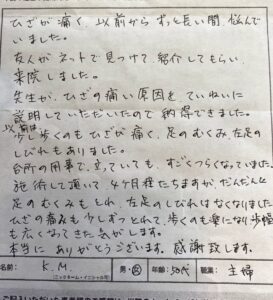 ひざが痛く、以前からずっと長い間悩んで
いました。
友人がネットで見つけて、紹介してもらい、
来院しました。
先生が、ひざの痛い原因を、ていねいに
説明していただいたので納得できました。
以前は、
少し歩くのもひざが痛く、足のむくみ、左足の
しびれもありました。
台所の用事で、立っていても、すごくつらくなっていました。
施術して頂いて、4ヶ月程たちますが、だんだんと
足のむくみもとれ、左足のしびれはなくなりました
ひざの痛みも少しずつとれて、歩くのも楽になり歩幅
も広くなってきた気がします。
本当に ありがとうございます。感謝致します。
名前： K.M (ニックネーム・イニシャル可) 男・女 年齢：50代 職業： 主婦